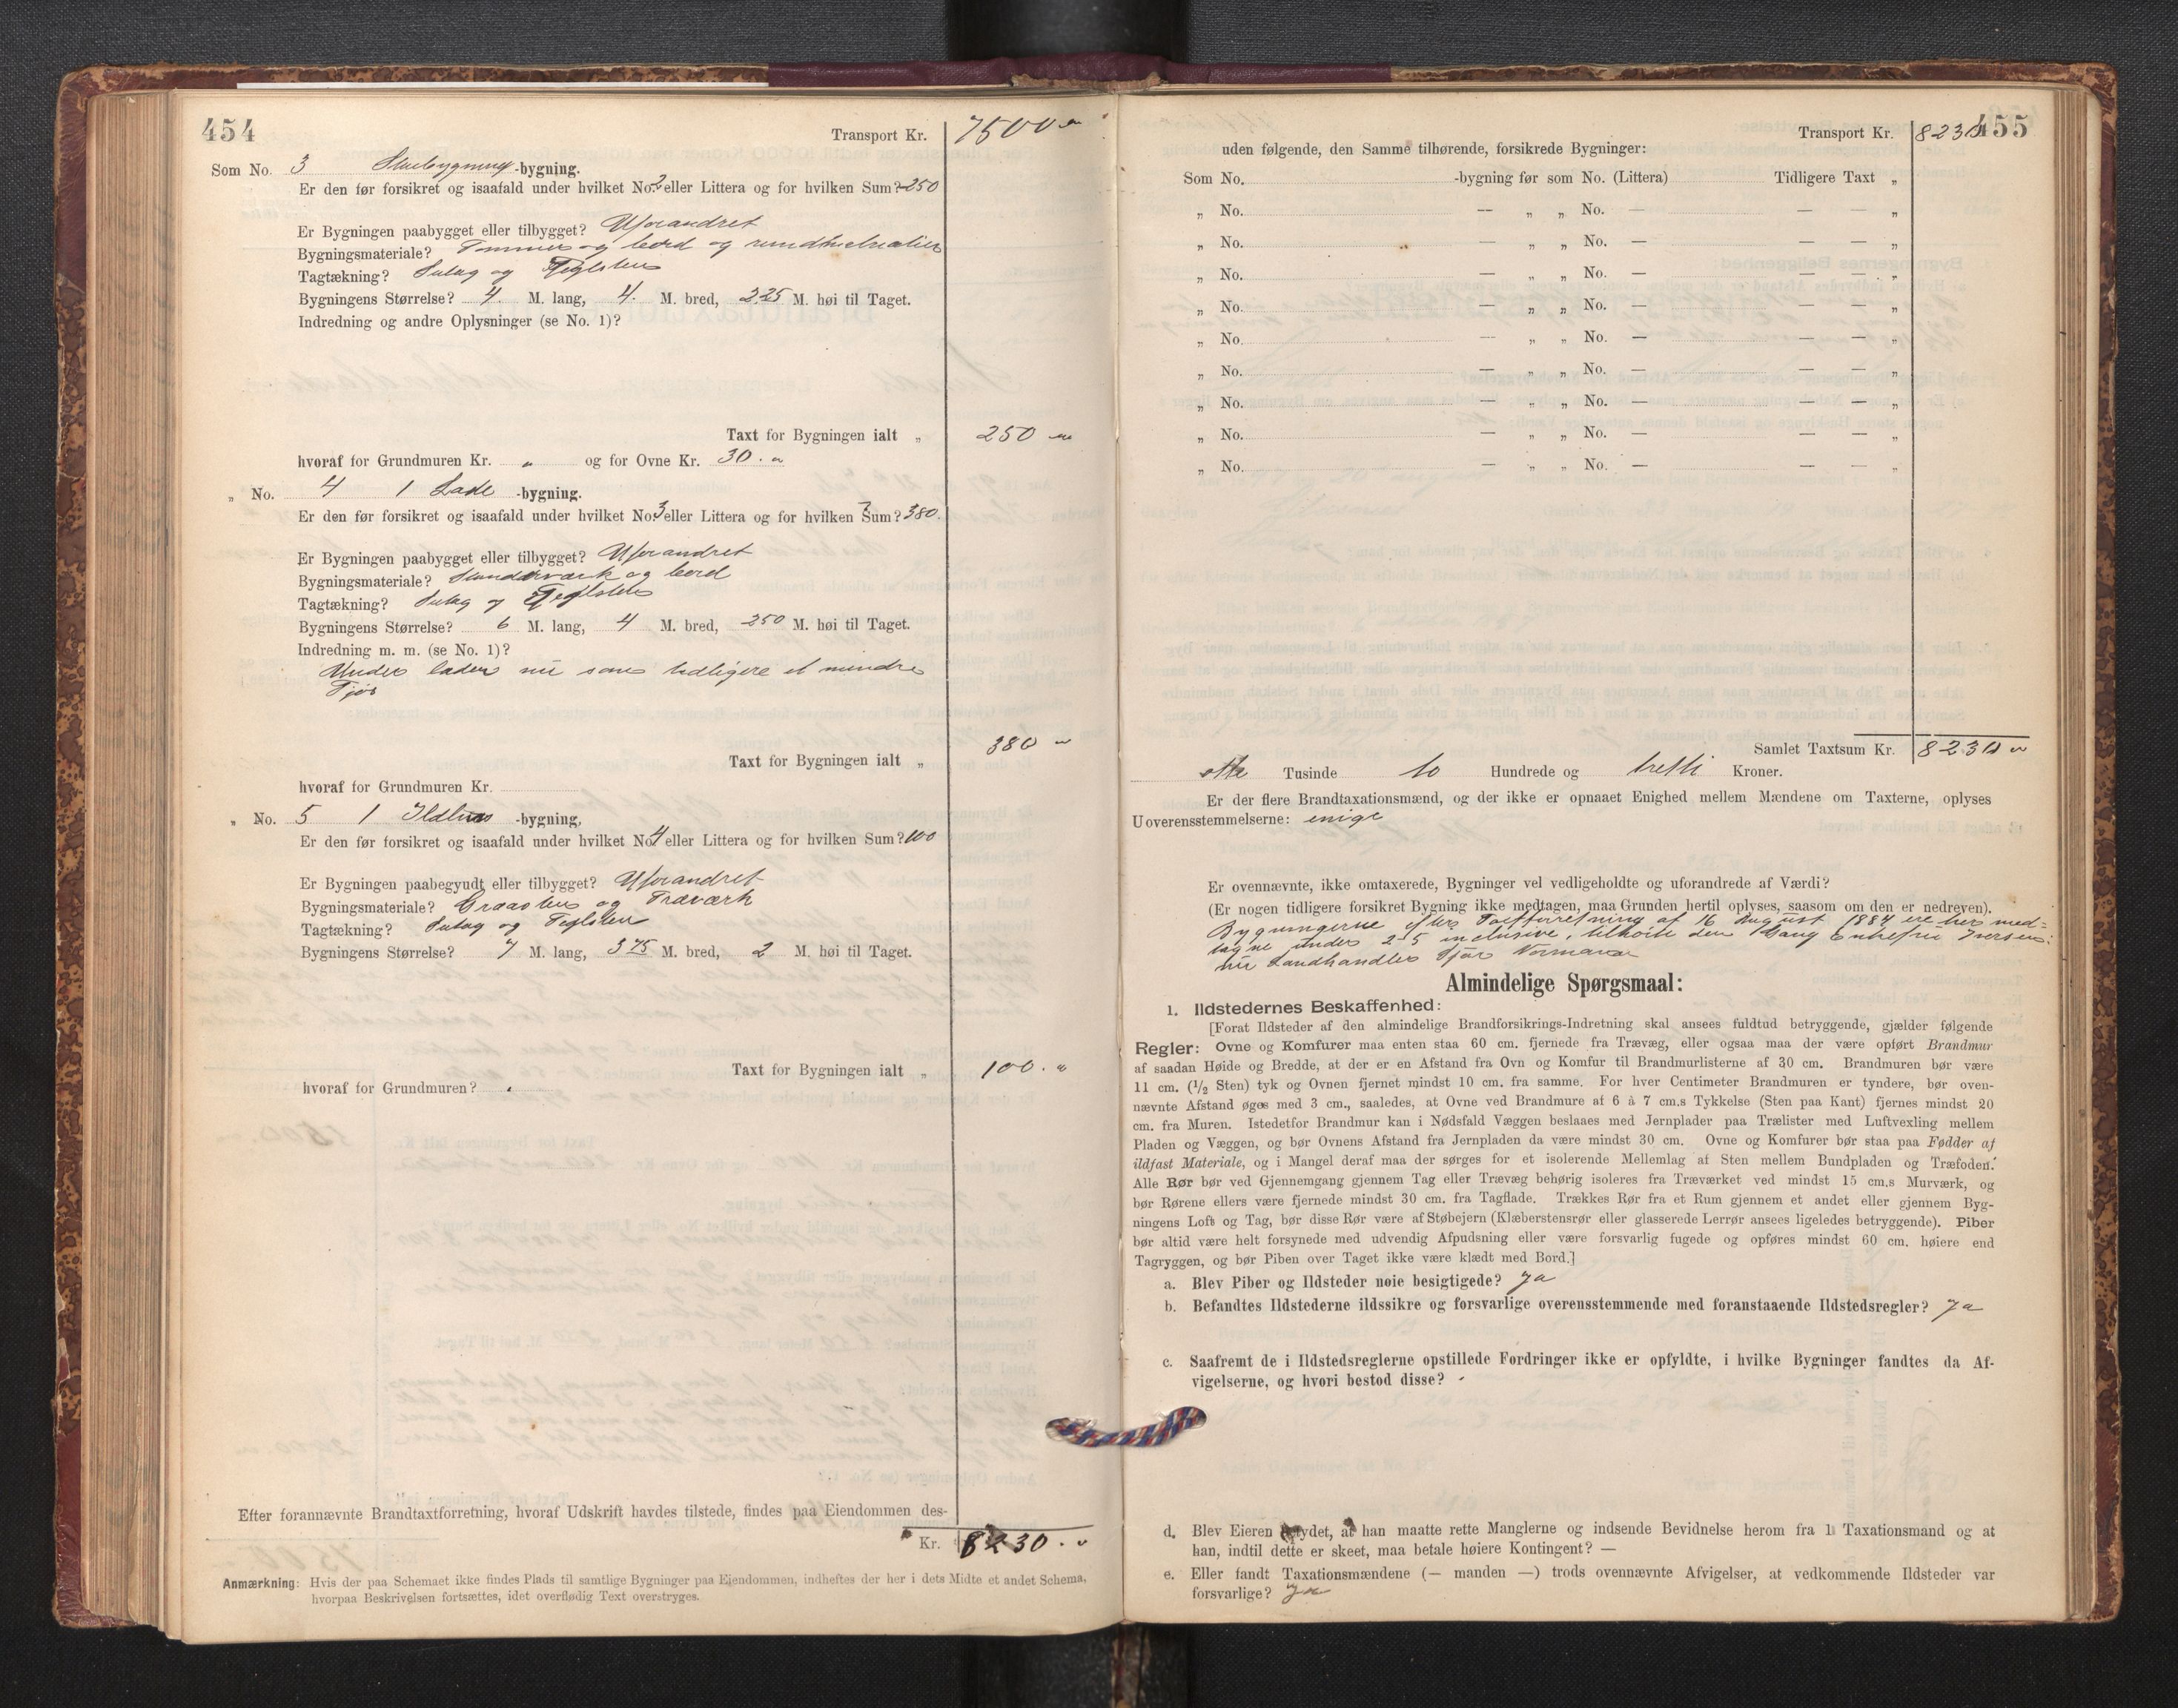 454
Transport Kr. 7500 "
Som No. 3 -bygning.
Er den før forsikret og isaafald under hvilket No. 2 eller Littera og for hvilken Sum? 250
Er Bygningen paabygget eller tilbygget? Uforandret
Bygningsmateriale? Tømmer og bord og
Tagtækning? Sutag og Teglsten
Bygningens Størrelse? 4. M. lang, 4. M. bred, 225 M. høi til Taget.
Indredning og andre Oplysninger (se No. 1)?
Taxt for Bygningen ialt „ 250 "
hvoraf for Grundmuren Kr. " og for Ovne Kr. 30. "
„ No. 4 1 Lade -bygning.
Er den før forsikret og isaafald under hvilket No. 3 eller Littera og for hvilken Sum? 380.
Er Bygningen paabygget eller tilbygget? Uforandret
Bygningsmateriale? Standerværk og bord
Tagtækning? Sutag og Teglsten
Bygningens Størrelse? 6 M. lang, 4 M. bred, 250 M. høi til Taget.
Indredning m. m. (se No. 1)?
Under laden nu som tidligere et mindre
Fjøs
380 "
Taxt for Bygningen ialt „
hvoraf for Grundmuren Kr.
„ No. 5 1 Ildhus -bygning,
Er den før forsikret og isaafald under hvilket No. 4 eller Littera og for hvilken Sum? 100
Er Bygningen paabegyudt eller tilbygget? Uforandret
Bygningsmateriale? Graasten og Træværk
Tagtækning? Sutag og Teglsten
Bygningens Størrelse? 7 M. lang, 375 M. bred, 2 M. høi til Taget.
Taxt for Bygningen ialt „ 100. "
hvoraf for Grundmuren?
Efter forannævnte Brandtaxtforretning, hvoraf Udskrift havdes tilstede, findes paa Eiendommen des-
Kr. 8230. "
Anmærkning: Hvis der paa Schemaet ikke findes Plads til samtlige Bygninger paa Eiendommen, indheftes der her i dets Midte et andet Schema,
hvorpaa Beskrivelsen fortsættes, idet overflødig Text overstryges.
Transport Kr. 8230 455
uden følgende, den Samme tilhørende, forsikrede Bygninger:
Som No. -bygning før som No. (Littera) Tidligere Taxt „
„ No. — „ „ No. — — — „
„ No. — „ „ No. — — — „
„ No. — „ „ No. — — — „
„ No. — „ „ No. — — — „
„ No. — „ „ No. — — — „
„ No. — „ „ No. — — — „
„ No. — „ „ No. — — — „
„ No. — „ „ No. — — — „
„ No. — „ „ No. — — — „
Samlet Taxtsum Kr. 8230 "
otte Tusinde to Hundrede og tretti Kroner.
Er der flere Brandtaxationsmænd, og der ikke er opnaaet Enighed mellem Mændene om Taxterne, oplyses
Uoverensstemmelserne: enige
Er ovennævnte, ikke omtaxerede, Bygninger vel vedligeholdte og uforandrede af Værdi?
(Er nogen tidligere forsikret Bygning ikke medtagen, maa Grunden hertil oplyses, saasom om den er nedreven).
Bygningerne efter Taxtforretning af 16 August 1884 ere her med-
tagne under 2-5 inclusive, tilhørte den Gang Enkefru Iversen.
nu Landhandler Normann
Almindelige Spørgsmaal:
1. Ildstedernes Beskaffenhed:
[Forat Ildsteder af den almindelige Brandforsikrings-Indretning skal ansees fuldtud betryggende, gjælder følgende
Regler: Ovne og Komfurer maa enten staa 60 cm. fjernede fra Trævæg, eller ogsaa maa der være opført Brandmur
af saadan Høide og Bredde, at der er en Afstand fra Ovn og Komfur til Brandmurlisterne af 30 cm. Brandmuren bør være
11 cm. (1/2 Sten) tyk og Ovnen fjernet mindst 10 cm. fra samme. For hver Centimeter Brandmuren er tyndere, bør oven-
nævnte Afstand øges med 3 cm., saaledes, at Ovne ved Brandmure af 6 à 7 cm.s Tykkelse (Sten paa Kant) fjernes mindst 20
cm. fra Muren. Istedetfor Brandmur kan i Nødsfald Væggen beslaaes med Jernplader paa Trælister med Luftvexling mellem
Pladen og Væggen, og bør Ovnens Afstand fra Jernpladen da være mindst 30 cm. Ovne og Komfurer bør staa paa Fødder af
ildfast Materiale, og i Mangel deraf maa der sørges for et isolerende Mellemlag af Sten mellem Bundpladen og Træfoden.
Alle Rør bør ved Gjennemgang gjennem Tag eller Trævæg behørig isoleres fra Træværket ved mindst 15 cm.s Murværk, og
bør Rørene ellers være fjernede mindst 30 cm. fra Tagflade. Trækkes Rør fra et Rum gjennem et andet eller gjennem Byg-
ningens Loft og Tag, bør disse Rør være af Støbejern (Klæberstensrør eller glasserede Lerrør ansees ligeledes betryggende). Piber
bør altid være helt forsynede med udvendig Afpudsning eller være forsvarlig fugede og opføres mindst 60 cm. høiere end
Tagryggen, og bør Piben over Taget ikke være klædt med Bord.]
a. Blev Piber og Ildsteder nøie besigtigede? Ja
b. Befandtes Ildstederne ildssikre og forsvarlige overensstemmende med foranstaaende Ildstedsregler? Ja
c. Saafremt de i Ildstedsreglerne opstillede Fordringer ikke er opfyldte, i hvilke Bygninger fandtes da Af-
vigelserne, og hvori bestod disse?
d. Blev Eieren betydet, at han maatte rette Manglerne og indsende Bevidnelse herom fra 1 Taxationsmand og at
han, indtil dette er skeet, maa betale høiere Kontingent? —
e. Eller fandt Taxationsmændene (— manden —) trods ovennævnte Afvigelser, at vedkommende Ildsteder var
forsvarlige? Ja